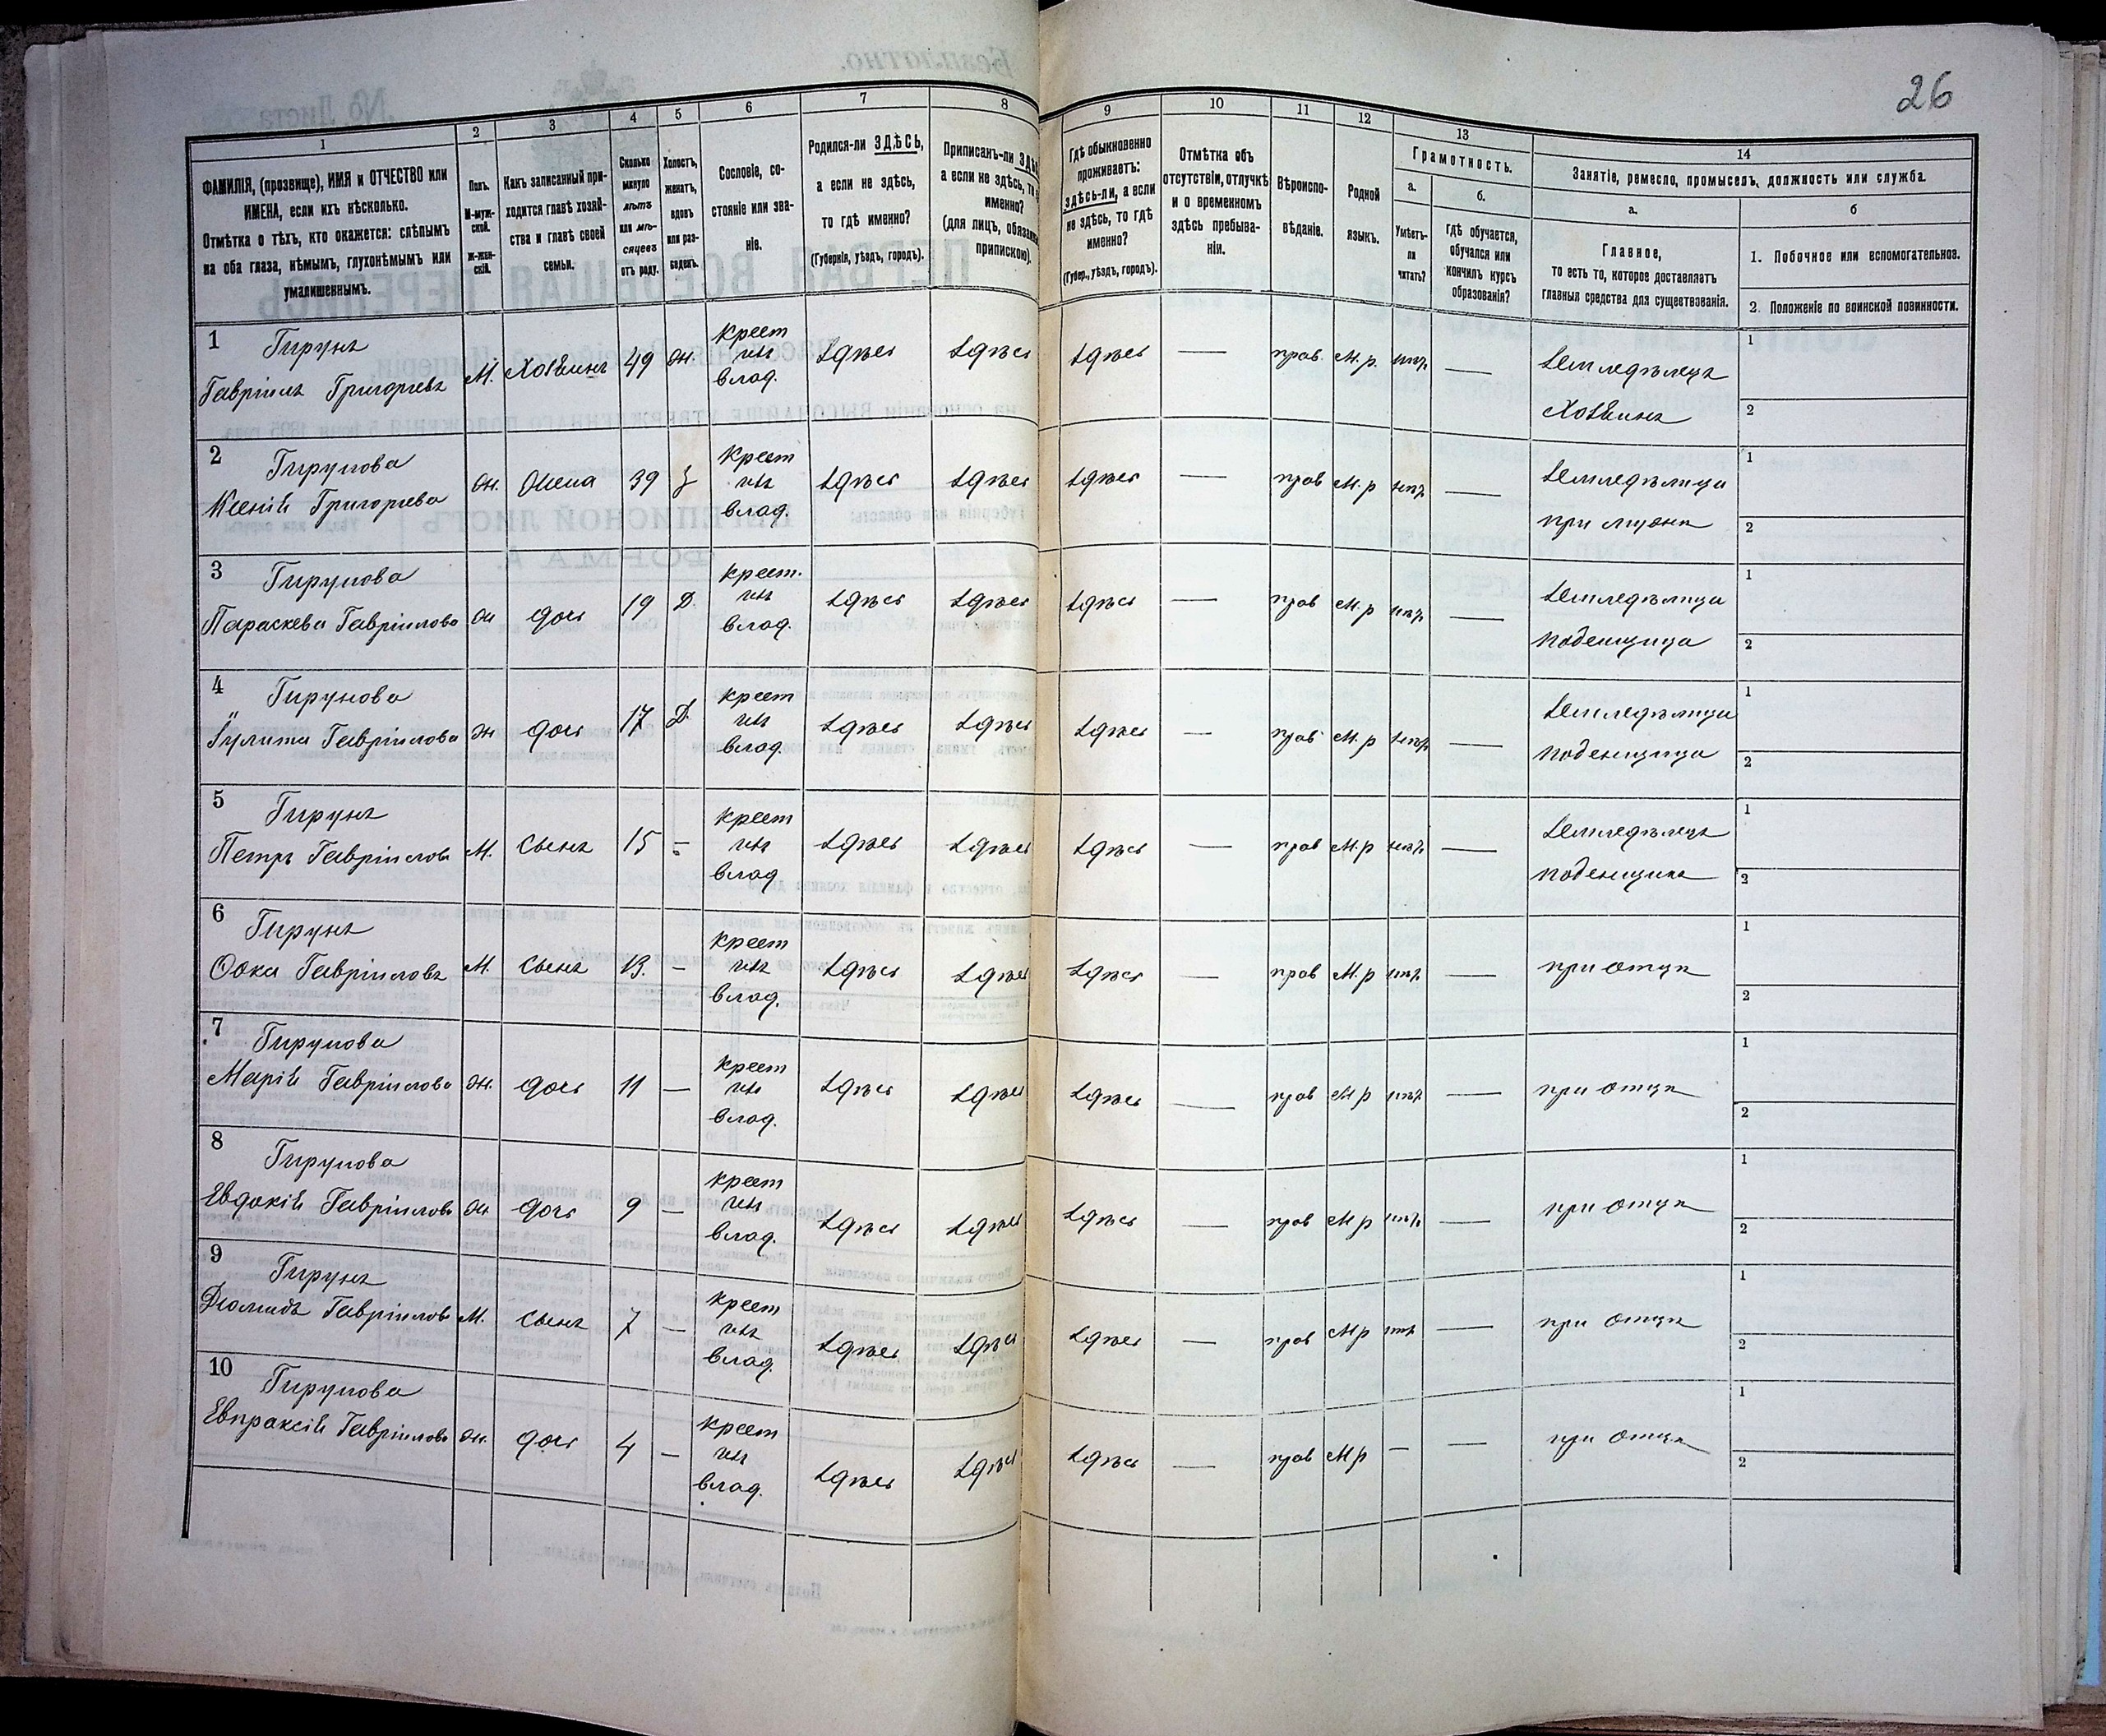 26
1
2
3
4
5
6
7
8
9
10
11
12
13
14
ФАМИЛІЯ, (прозвище), ИМЯ и ОТЧЕСТВО или
ИМЕНА, если ихъ нѣсколько.
Отмѣтка о тѣхъ, кто окажется: слѣпымъ
на оба глаза, нѣмымъ, глухонѣмымъ или
умалишеннымъ.
Полъ.
М-муж-
ской.
Ж-жен-
скій.
Какъ записанный при-
ходится главѣ хозяй-
ства и главѣ своей
семьи.
Сколько
минуло
лѣтъ
или мѣ-
сяцевъ
отъ роду.
Холостъ,
женатъ,
вдовъ
или раз-
веденъ.
Сословіе, со-
стояніе или зва-
ніе.
Родился-ли ЗДѢСЬ,
а если не здѣсь,
то гдѣ именно?
(Губернія, уѣздъ, городъ).
Приписанъ-ли
а если не здѣсь,
именно?
(для лицъ,
припискою).
Гдѣ обыкновенно
проживаетъ:
здѣсь-ли, а если
не здѣсь, то гдѣ
именно?
(Губер., уѣздъ, городъ).
Отмѣтка объ
отсутствіи, отлучкѣ
и о временномъ
здѣсь пребыва-
ніи.
Вѣроиспо-
вѣданіе.
Родной
языкъ.
Грамотность.
а.
Умѣетъ-
ли
читать?
б.
гдѣ обучается,
обучался или
кончилъ курсъ
образованія?
Занятіе, ремесло, промыселъ, должность или служба.
а.
Главное,
то есть то, которое доставляетъ
главныя средства для существованія.
б
1. Побочное или вспомогательное.
2. Положеніе по воинской повинности.
1 Гирунъ
Гавріилъ Григорьевъ М. Хозяинъ 49 ж. крест изъ влад. здѣсь здѣсь здѣсь — прав. М.р. нѣтъ — земледѣлецъ 1
хозяинъ 2
2 Гирунова
Ксенія Григорьева ж. жена 39 з крест изъ влад. здѣсь здѣсь здѣсь — прав М.р нѣтъ — земледѣлица 1
при мужѣ 2
3 Гирунова
Параскева Гавріилова ж дочь 19 Д крест. изъ влад. здѣсь здѣсь здѣсь — прав М.р нѣтъ — земледѣлица 1
поденщица 2
4 Гирунова
Іулита Гавріилова ж дочь 17 Д. крест изъ влад. здѣсь здѣсь здѣсь — прав М.р нѣтъ — земледѣлица 1
поденщица 2
5 Гирунъ
Петръ Гавріиловъ М. сынъ 15 - крест изъ влад здѣсь здѣсь здѣсь — прав М.р нѣтъ — земледѣлецъ 1
поденщикъ 2
6 Гирунъ
Ѳока Гавріиловъ М. сынъ 13. — крест изъ влад. здѣсь здѣсь здѣсь — прав М.р нѣтъ — при отцѣ 1
2
7 Гирунова
Марія Гавріилова ж. дочь 11 — крест изъ влад. здѣсь здѣсь здѣсь — прав М р нѣтъ — при отцѣ 1
2
8 Гирунова
Евдокія Гавріилова ж дочь 9 — крест изъ влад. здѣсь здѣсь здѣсь — прав М р нѣтъ — при отцѣ 1
2
9 Гирунъ
Діомидъ Гавріиловъ М. сынъ 7 — крест изъ влад. здѣсь здѣсь здѣсь — прав М р нѣтъ — при отцѣ 1
2
10 Гирунова
Евпраксія Гавріилова ж. дочь 4 — крест изъ влад. здѣсь здѣсь здѣсь — прав М р — — при отцѣ 1
2